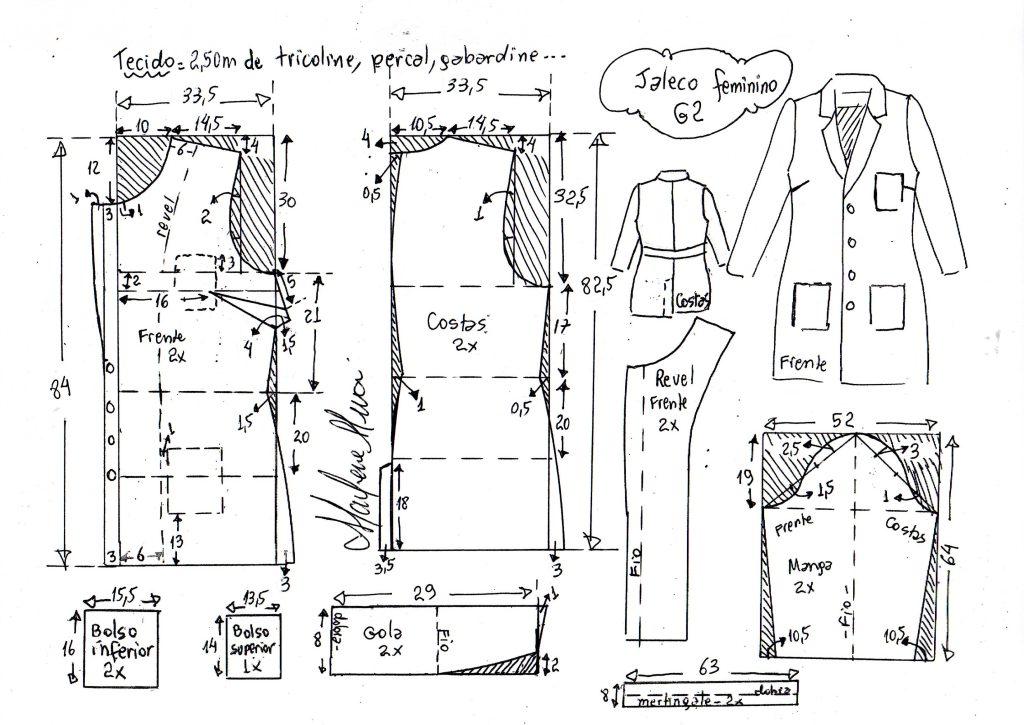 Tecido = 2,50m de tricoline, percal, gabardine...
Jaleco feminino
G2
33,5
10
14,5
4
12
6
1
3
1
30
2
revel
3
2
16
5
21
4
1,5
Frente
2x
84
1,5
20
1
13
3
6
3
33,5
10,5
14,5
4
4
0,5
1
32,5
82,5
Costas
2x
17
1
0,5
20
18
3,5
3
Marlene Mukai
Costas
Frente
Revel
Frente
2x
Fio
52
2,5
3
19
1,5
1
Frente
Costas
64
Manga
2x
Fio
10,5
10,5
15,5
16
Bolso
inferior
2x
13,5
14
Bolso
superior
1x
29
1
8
dobra
Gola
2x
Fio
2
63
8
martingale - 2x
dobra